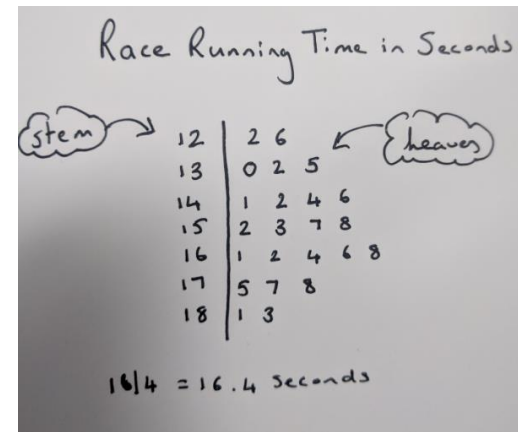 Race Running Time in Seconds
stem
leaves
12 | 2 6
13 | 0 2 5
14 | 1 2 4 6
15 | 2 3 7 8
16 | 1 2 4 6 8
17 | 5 7 8
18 | 1 3
16|4 = 16.4 seconds